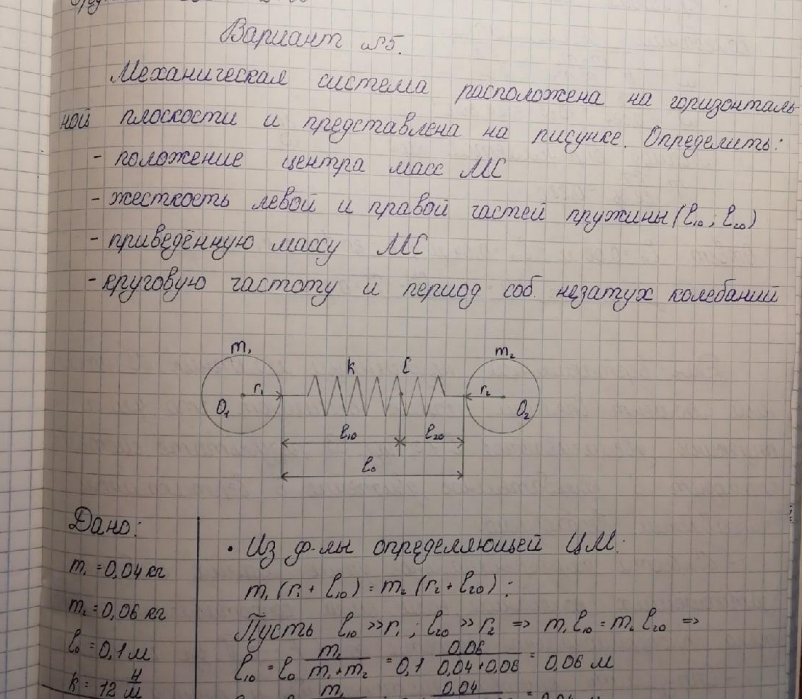 Вариант №5.
Механическая система расположена на горизонталь-
ной плоскости и представлена на рисунке. Определить:
- положение центра масс МС
- жесткость левой и правой частей пружины (l₁₀; l₂₀)
- приведённую массу МС
- круговую частоту и период соб. незатух колебаний
m₁ k C m₂
O₁ r₁ r₂ O₂
l₁₀ l₂₀
l₀
Дано:
• Из ф-лы определяющей ЦМ:
m₁ = 0,04 кг
m₁(r₁ + l₁₀) = m₂(r₂ + l₂₀);
m₂ = 0,06 кг
Пусть l₁₀ >> r₁; l₂₀ >> r₂ => m₁l₁₀ = m₂l₂₀ =>
l₀ = 0,1 м
l₁₀ = l₀ m₂/(m₁+m₂) = 0,1 0,06/(0,04+0,06) = 0,06 м
k = 12 Н/м
m₁ 0,04